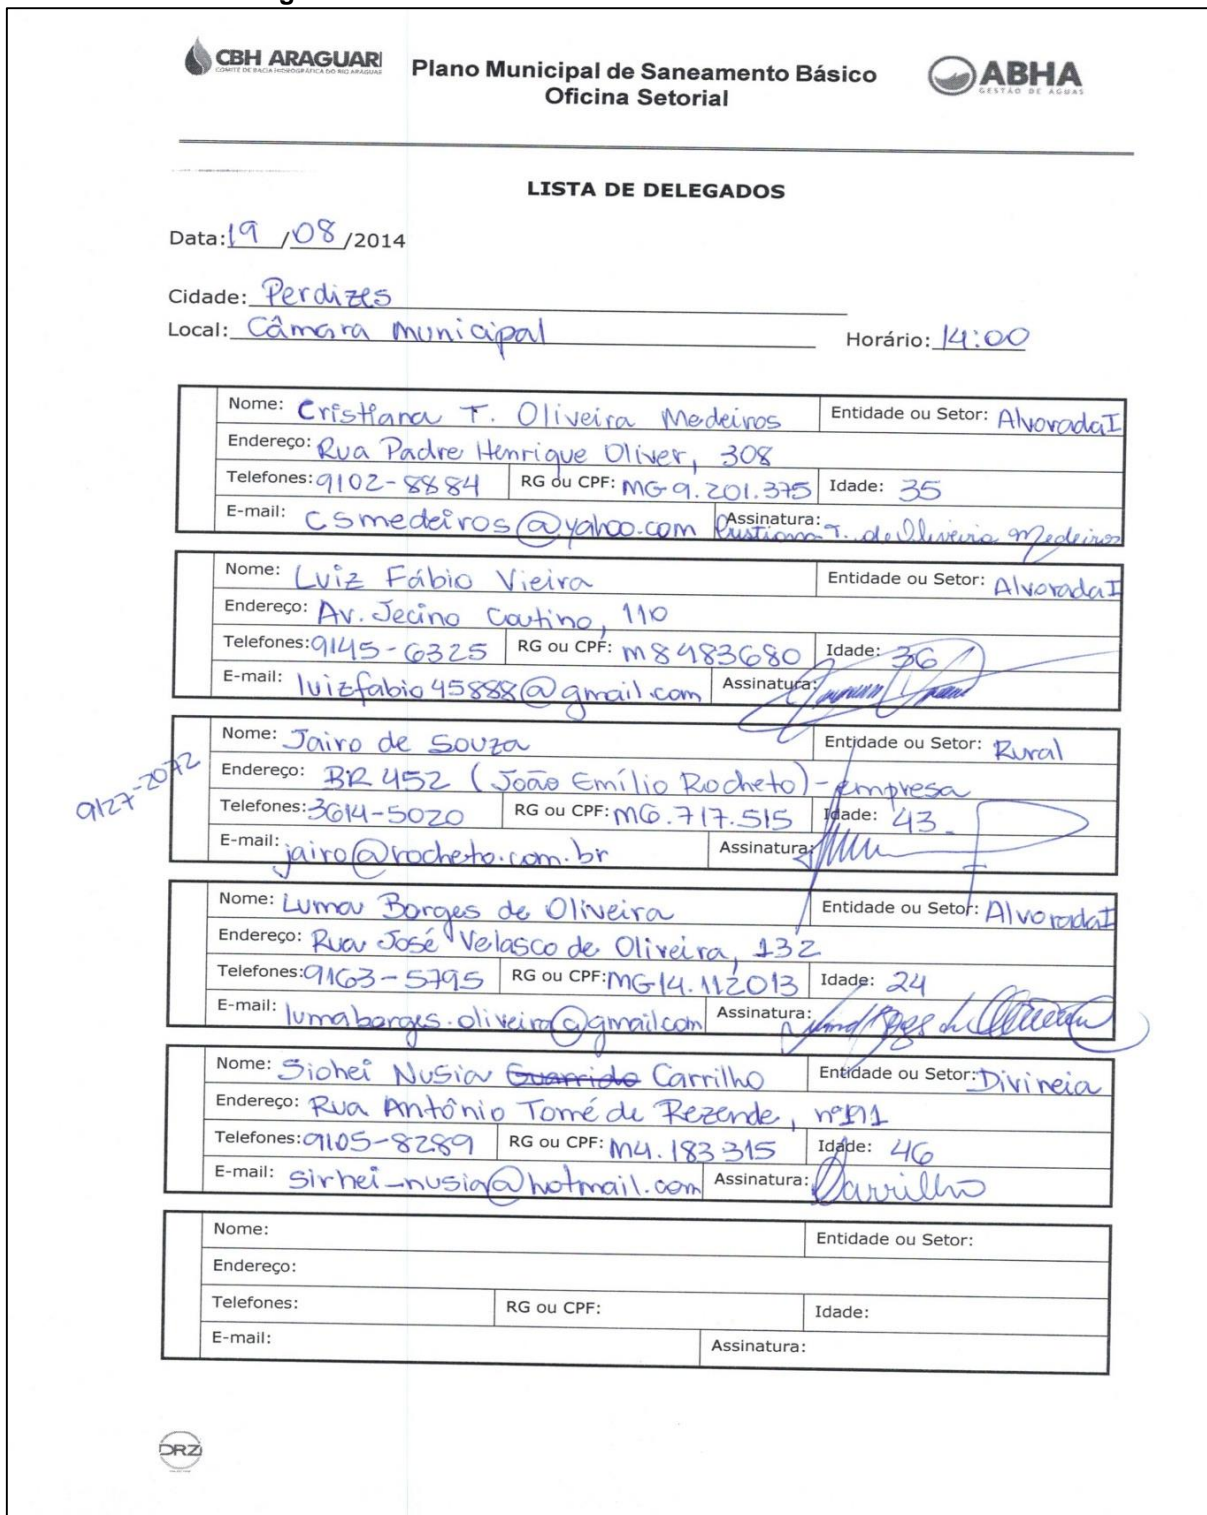 CBH ARAGUARI
COMITÊ DE BACIA HIDROGRÁFICA DO RIO ARAGUARI
Plano Municipal de Saneamento Básico
Oficina Setorial
ABHA
GESTÃO DE ÁGUAS
LISTA DE DELEGADOS
Data: 19 /08 /2014
Cidade: Perdizes
Local: Câmara municipal Horário: 14:00
Nome: Cristiana T. Oliveira Medeiros Entidade ou Setor: Alvorada I
Endereço: Rua Padre Henrique Oliver, 308
Telefones: 9102-8884 RG ou CPF: MG 9.201.375 Idade: 35
E-mail: csmedeiros@yahoo.com Assinatura: Cristiana T. de Oliveira Medeiros
Nome: Luiz Fábio Vieira Entidade ou Setor: Alvorada I
Endereço: Av. Jecino Coutino, 110
Telefones: 9145-6325 RG ou CPF: M8483680 Idade: 36
E-mail: luizfabio45888@gmail.com Assinatura:
Nome: Jairo de Souza Entidade ou Setor: Rural
9127-2072
Endereço: BR 452 (João Emílio Rocheto) - empresa
Telefones: 3614-5020 RG ou CPF: MG.717.515 Idade: 43
E-mail: jairo@rocheto.com.br Assinatura:
Nome: Luma Borges de Oliveira Entidade ou Setor: Alvorada I
Endereço: Rua José Velasco de Oliveira, 132
Telefones: 9163-5795 RG ou CPF: MG14.112013 Idade: 24
E-mail: lumaborges.oliveira@gmail.com Assinatura: Luma Borges de Oliveira
Nome: Siohei Nusia Guarrido Carrilho Entidade ou Setor: Divineia
Endereço: Rua Antônio Tomé de Rezende, nº191
Telefones: 9105-8289 RG ou CPF: M4.183.315 Idade: 46
E-mail: sirhei_nusia@hotmail.com Assinatura: Carrilho
Nome: Entidade ou Setor:
Endereço:
Telefones: RG ou CPF: Idade:
E-mail: Assinatura:
DRZ